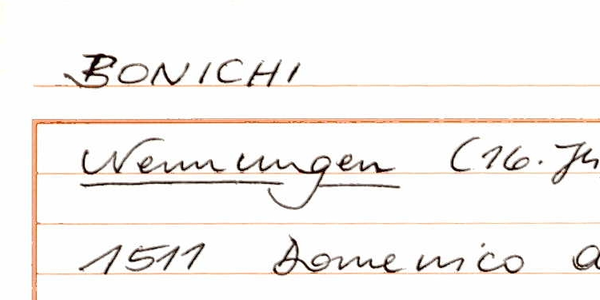 BONICHI
Nennungen (16. Jh
1511 Domenico